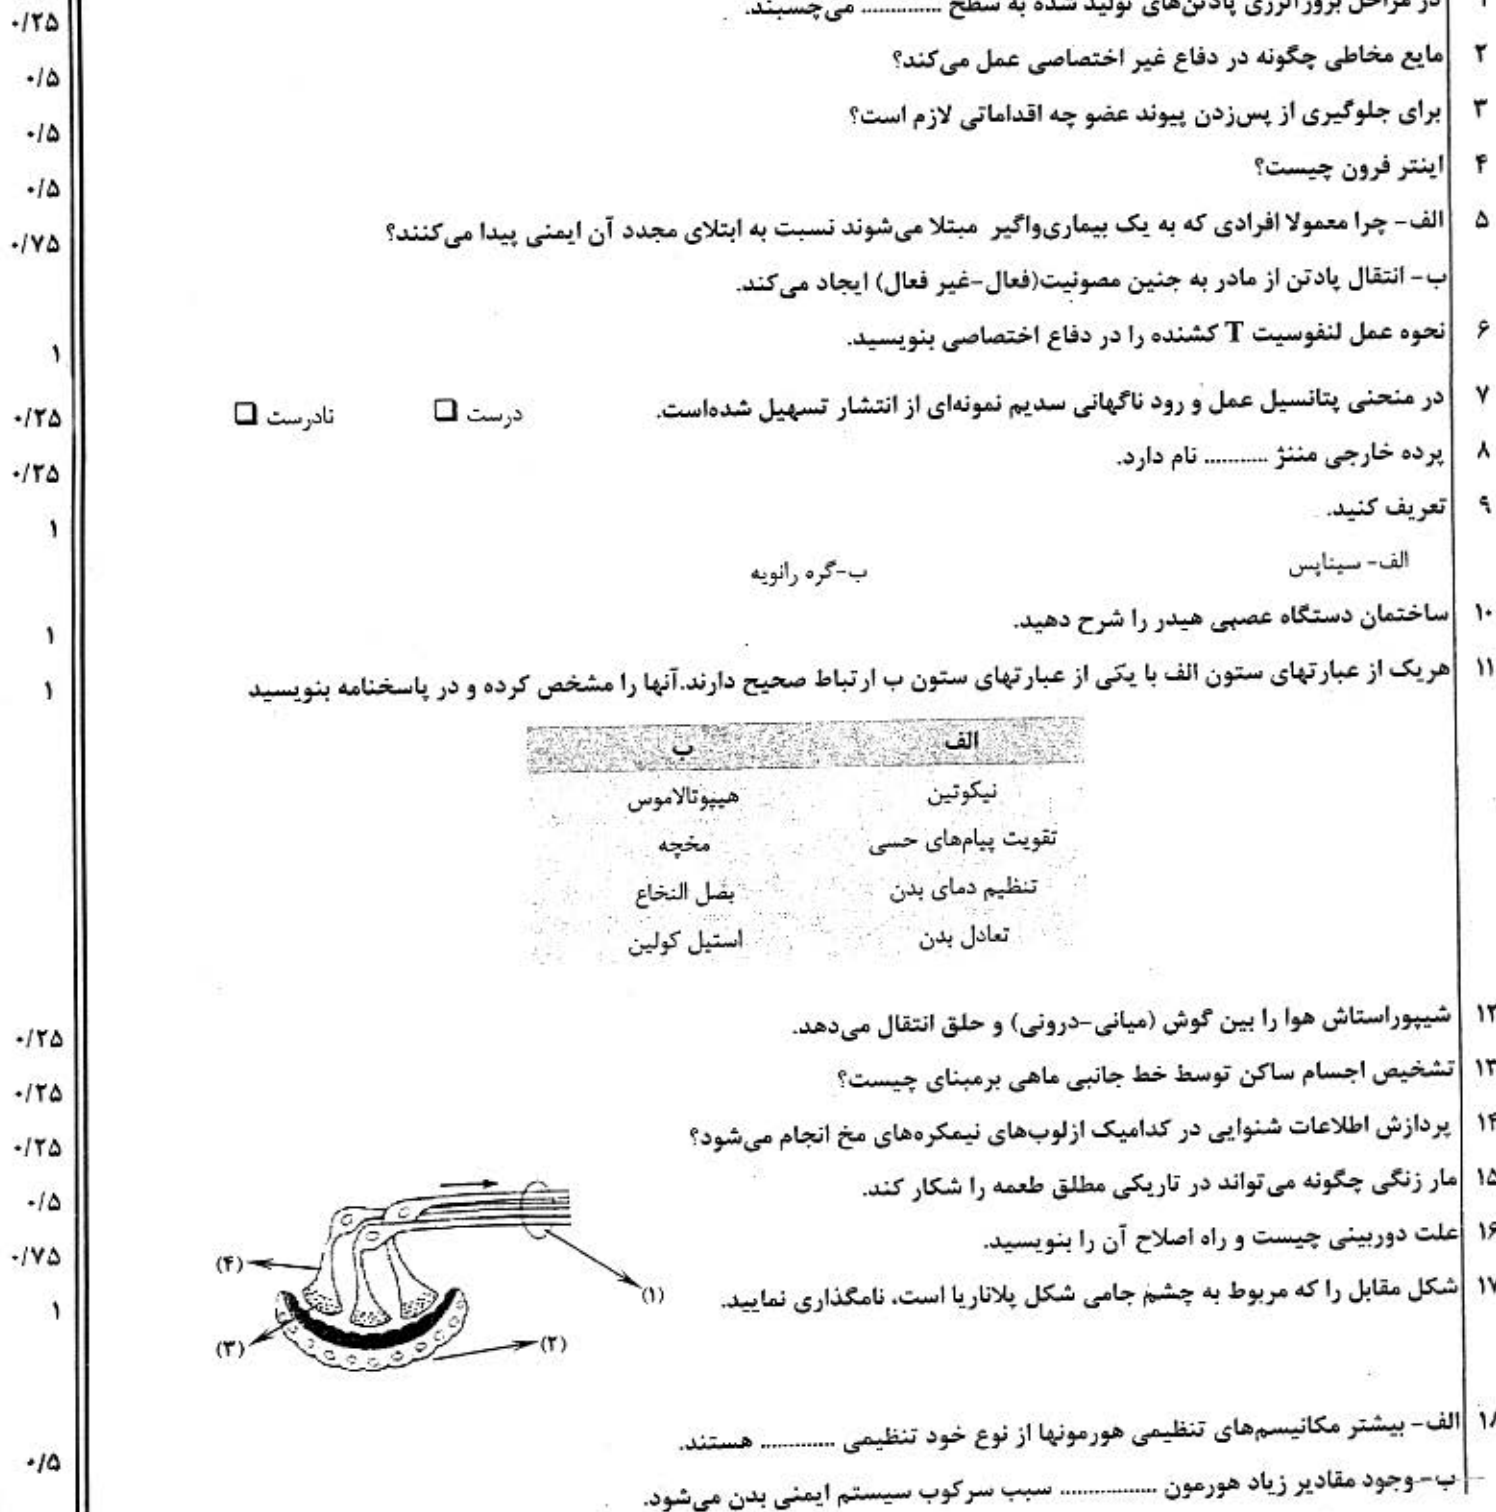 ۱ در مراحل بروز آلرژی پادتن‌های تولید شده به سطح ............. می‌چسبند. ۰/۲۵
۲ مایع مخاطی چگونه در دفاع غیر اختصاصی عمل می‌کند؟ ۰/۵
۳ برای جلوگیری از پس‌زدن پیوند عضو چه اقداماتی لازم است؟ ۰/۵
۴ اینتر فرون چیست؟ ۰/۵
۵ الف- چرا معمولا افرادی که به یک بیماری‌واگیر مبتلا می‌شوند نسبت به ابتلای مجدد آن ایمنی پیدا می‌کنند؟ ۰/۷۵
ب- انتقال پادتن از مادر به جنین مصونیت(فعال-غیر فعال) ایجاد می‌کند.
۶ نحوه عمل لنفوسیت T کشنده را در دفاع اختصاصی بنویسید. ۱
۷ در منحنی پتانسیل عمل و رود ناگهانی سدیم نمونه‌ای از انتشار تسهیل شده‌است. درست ❑ نادرست ❑ ۰/۲۵
۸ پرده خارجی مننژ ........... نام دارد. ۰/۲۵
۹ تعریف کنید. ۱
الف- سیناپس ب-گره رانویه
۱۰ ساختمان دستگاه عصبی هیدر را شرح دهید. ۱
۱۱ هریک از عبارتهای ستون الف با یکی از عبارتهای ستون ب ارتباط صحیح دارند.آنها را مشخص کرده و در پاسخنامه بنویسید ۱
الف ب
نیکوتین هیپوتالاموس
تقویت پیام‌های حسی مخچه
تنظیم دمای بدن بصل النخاع
تعادل بدن استیل کولین
۱۲ شیپوراستاش هوا را بین گوش (میانی-درونی) و حلق انتقال می‌دهد. ۰/۲۵
۱۳ تشخیص اجسام ساکن توسط خط جانبی ماهی برمبنای چیست؟ ۰/۲۵
۱۴ پردازش اطلاعات شنوایی در کدامیک ازلوب‌های نیمکره‌های مخ انجام می‌شود؟ ۰/۲۵
۱۵ مار زنگی چگونه می‌تواند در تاریکی مطلق طعمه را شکار کند. ۰/۵
۱۶ علت دوربینی چیست و راه اصلاح آن را بنویسید. ۰/۷۵
۱۷ شکل مقابل را که مربوط به چشم جامی شکل پلاناریا است، نامگذاری نمایید. ۱
(۱)
(۲)
(۳)
(۴)
۱۸ الف- بیشتر مکانیسم‌های تنظیمی هورمونها از نوع خود تنظیمی ............ هستند. ۰/۵
ب- وجود مقادیر زیاد هورمون ................ سبب سرکوب سیستم ایمنی بدن می‌شود.